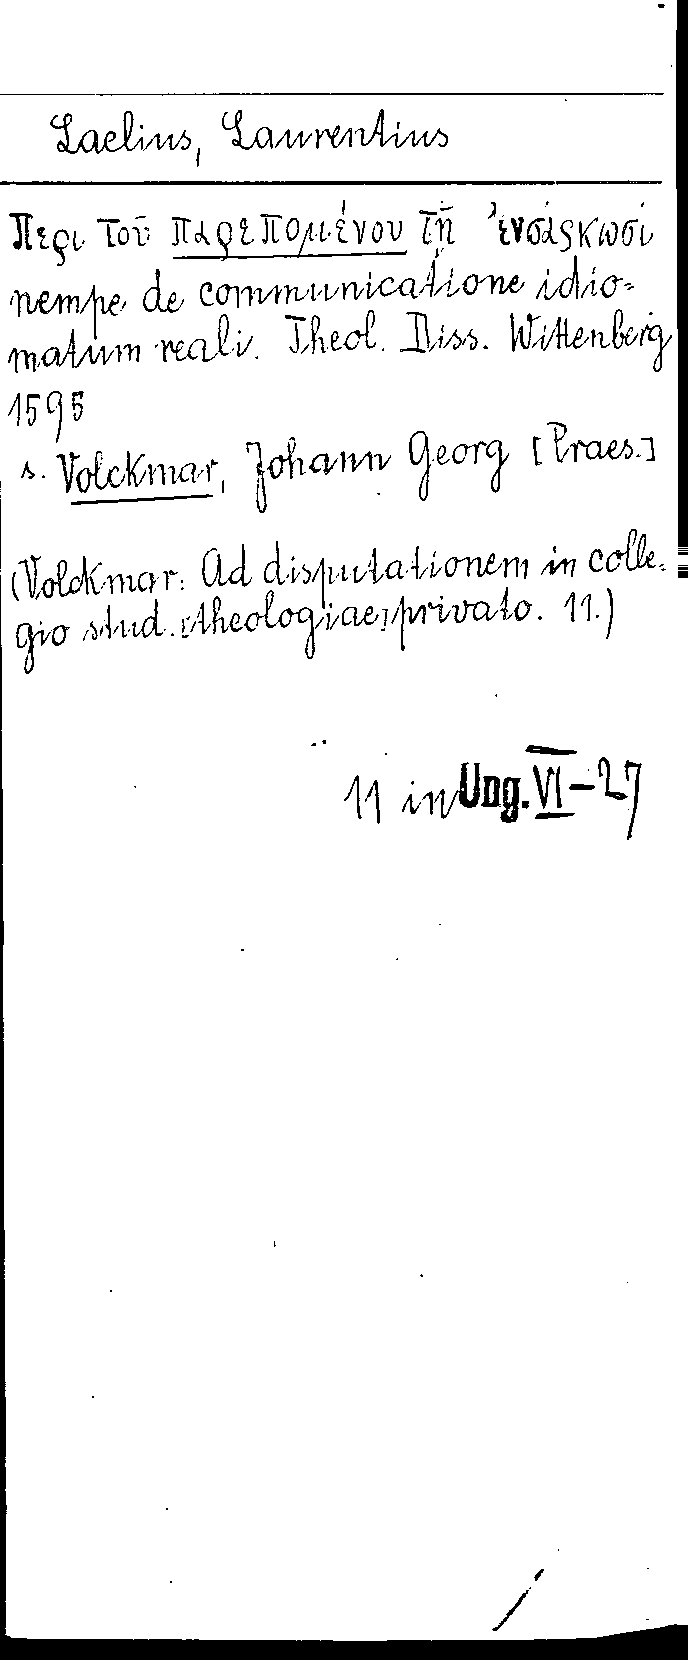 Laelius, Laurentius
Περι τοῦ παρεπομένου τῇ ἐνσάρκωσί
nempe de communicatione idio-
matum reali. Theol. Diss. Wittenberg
1595
s. Volckmar, Johann Georg [Praes.]
(Volckmar: Ad disputationem in colle-
gio stud. [theologiae] privato. 11.)
11 in Ung. VI-27